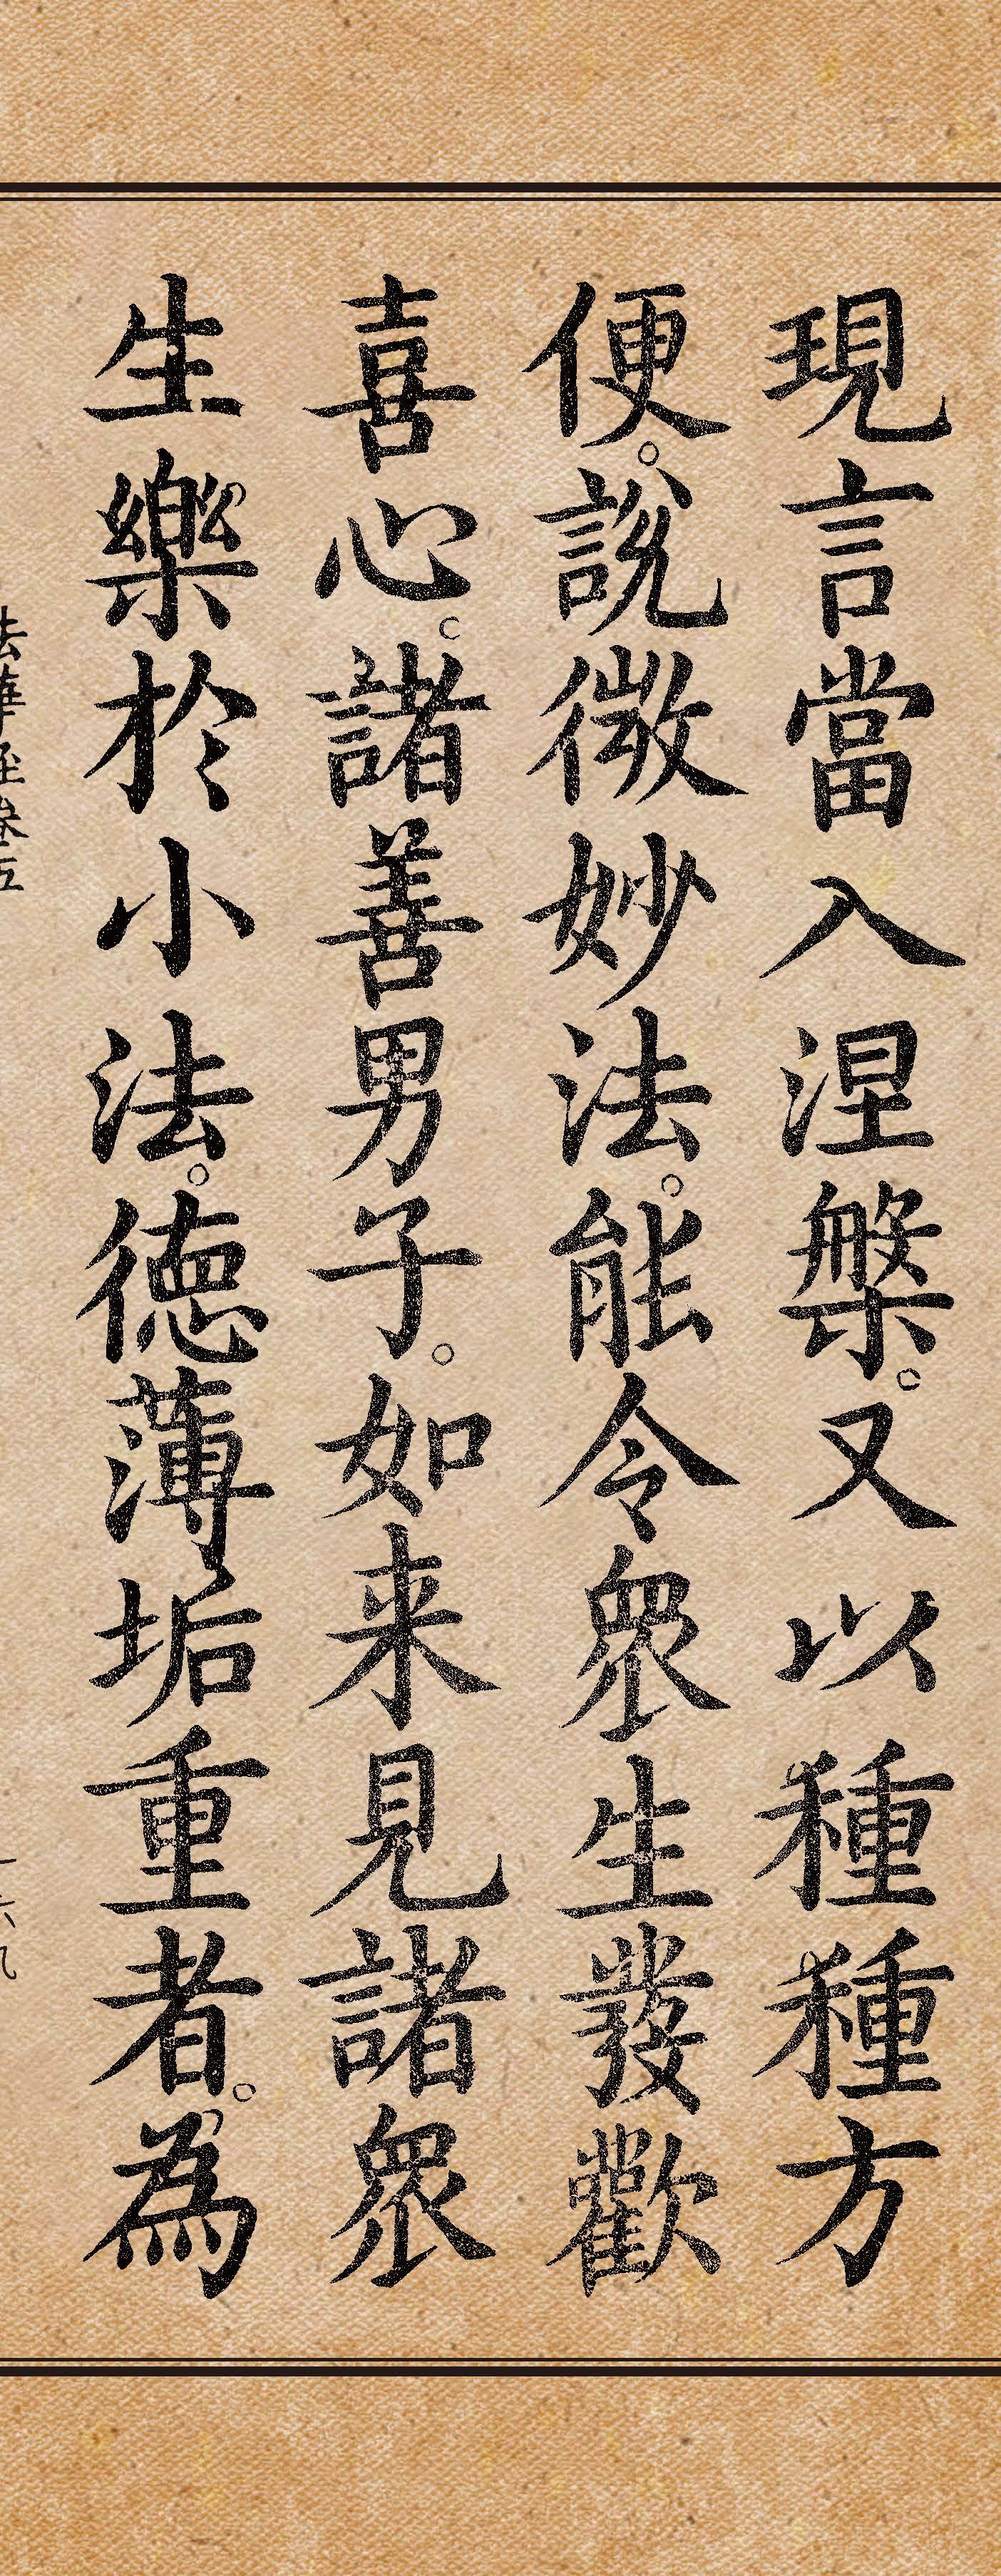 現言當入涅槃。又以種種方
便。說微妙法。能令眾生發歡
喜心。諸善男子。如来見諸眾
生樂於小法。德薄垢重者。為
法華經卷五
一六九